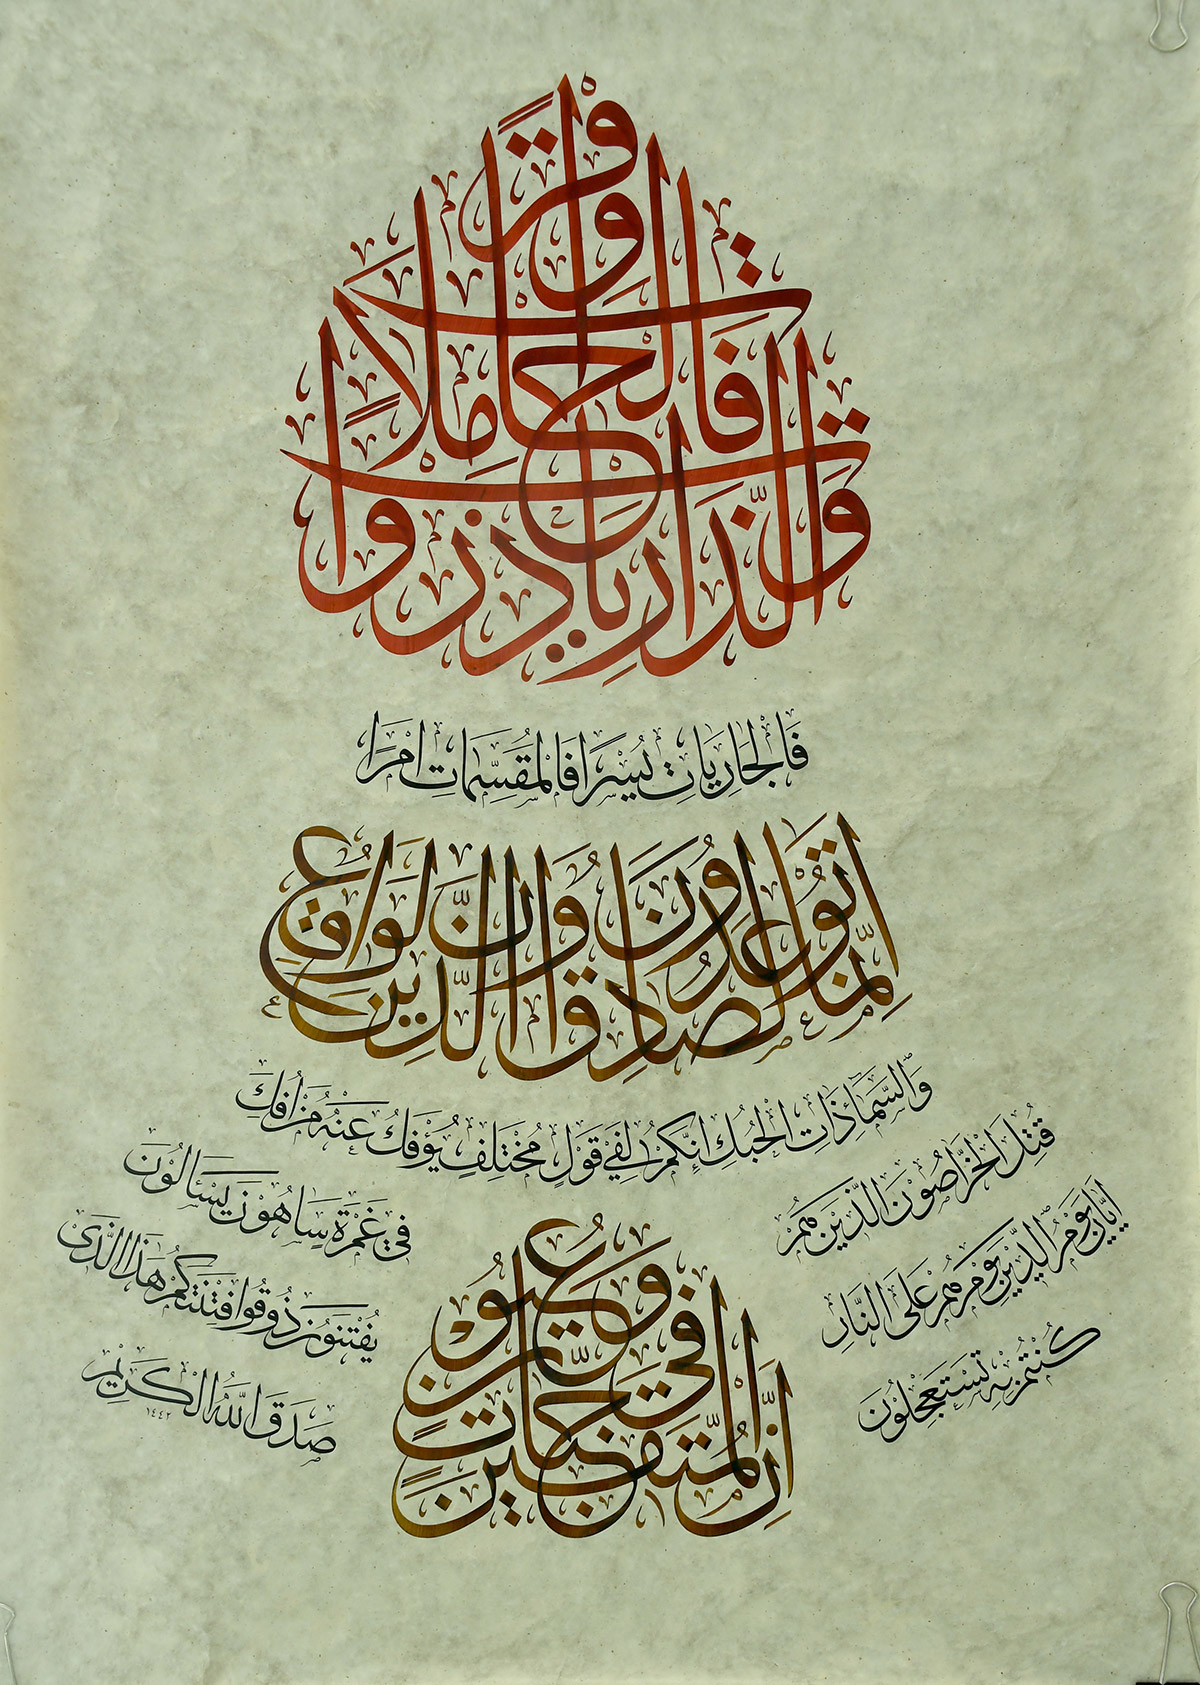 وَالذَّارِيَاتِ ذَرْوًا فَالْحَامِلَاتِ وِقْرًا
فَالْجَارِيَاتِ يُسْرًا فَالْمُقَسِّمَاتِ أَمْرًا
إِنَّمَا تُوعَدُونَ لَصَادِقٌ وَإِنَّ الدِّينَ لَوَاقِعٌ
وَالسَّمَاءِ ذَاتِ الْحُبُكِ إِنَّكُمْ لَفِي قَوْلٍ مُخْتَلِفٍ يُؤْفَكُ عَنْهُ مَنْ أُفِكَ
قُتِلَ الْخَرَّاصُونَ الَّذِينَ هُمْ
فِي غَمْرَةٍ سَاهُونَ يَسْأَلُونَ
أَيَّانَ يَوْمُ الدِّينِ يَوْمَ هُمْ عَلَى النَّارِ
يُفْتَنُونَ ذُوقُوا فِتْنَتَكُمْ هَذَا الَّذِي
كُنْتُمْ بِهِ تَسْتَعْجِلُونَ
إِنَّ الْمُتَّقِينَ فِي جَنَّاتٍ وَعُيُونٍ
صَدَقَ اللَّهُ الْكَرِيمُ
١٤٤٢